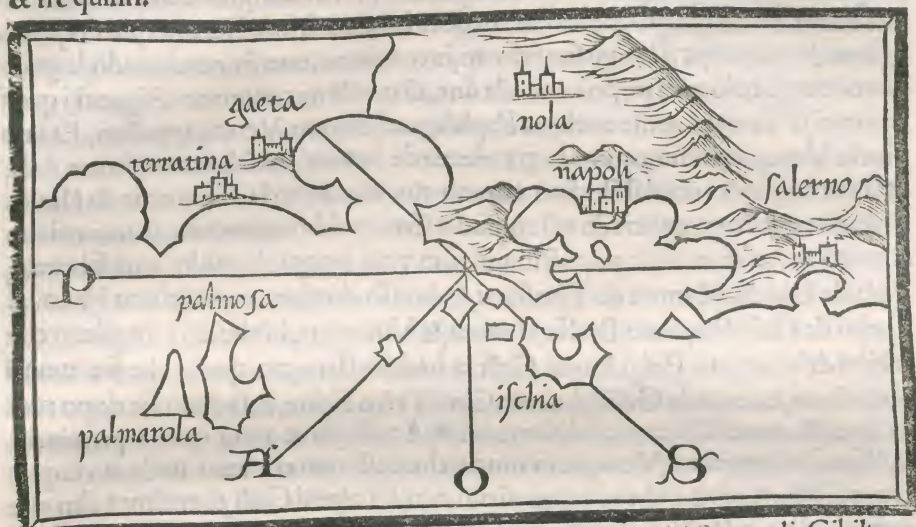 & tre quinti.
gaeta
nola
terratina
napoli
salerno
P
palmosa
ischia
palmarola
A
O
S